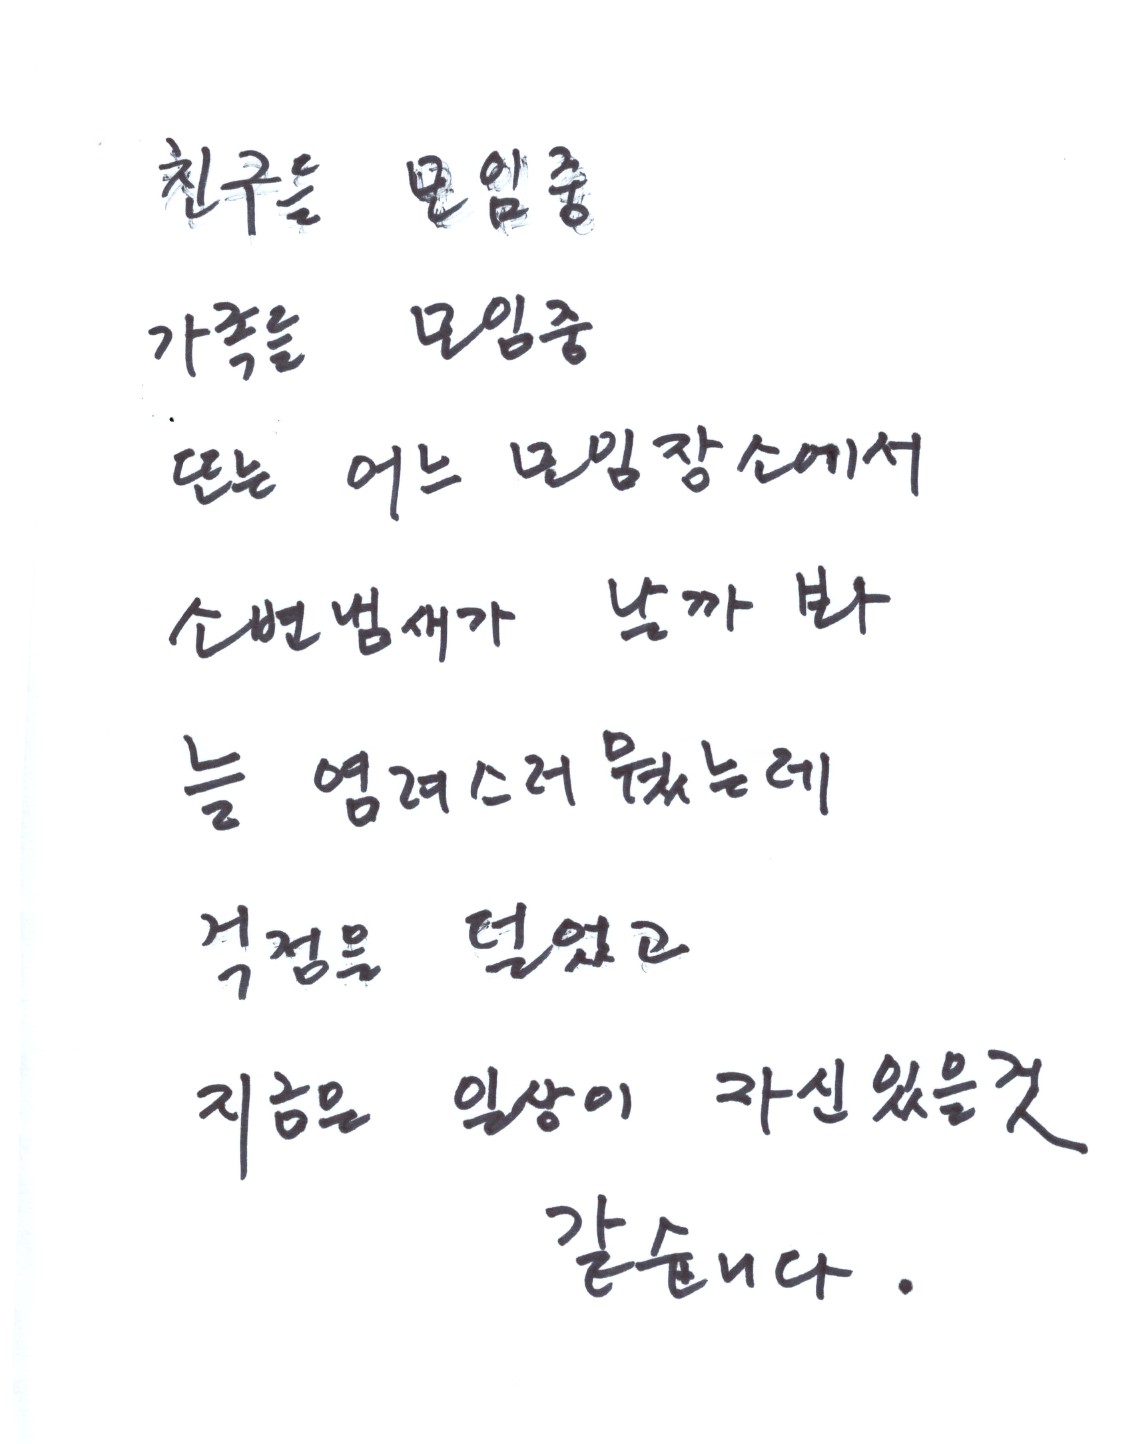 친구들 모임중
가족들 모임중
또는 어느 모임장소에서
소변냄새가 날까 봐
늘 염려스러웠는데
걱정을 덜었고
지금은 일상이 자신있을것
같습니다.